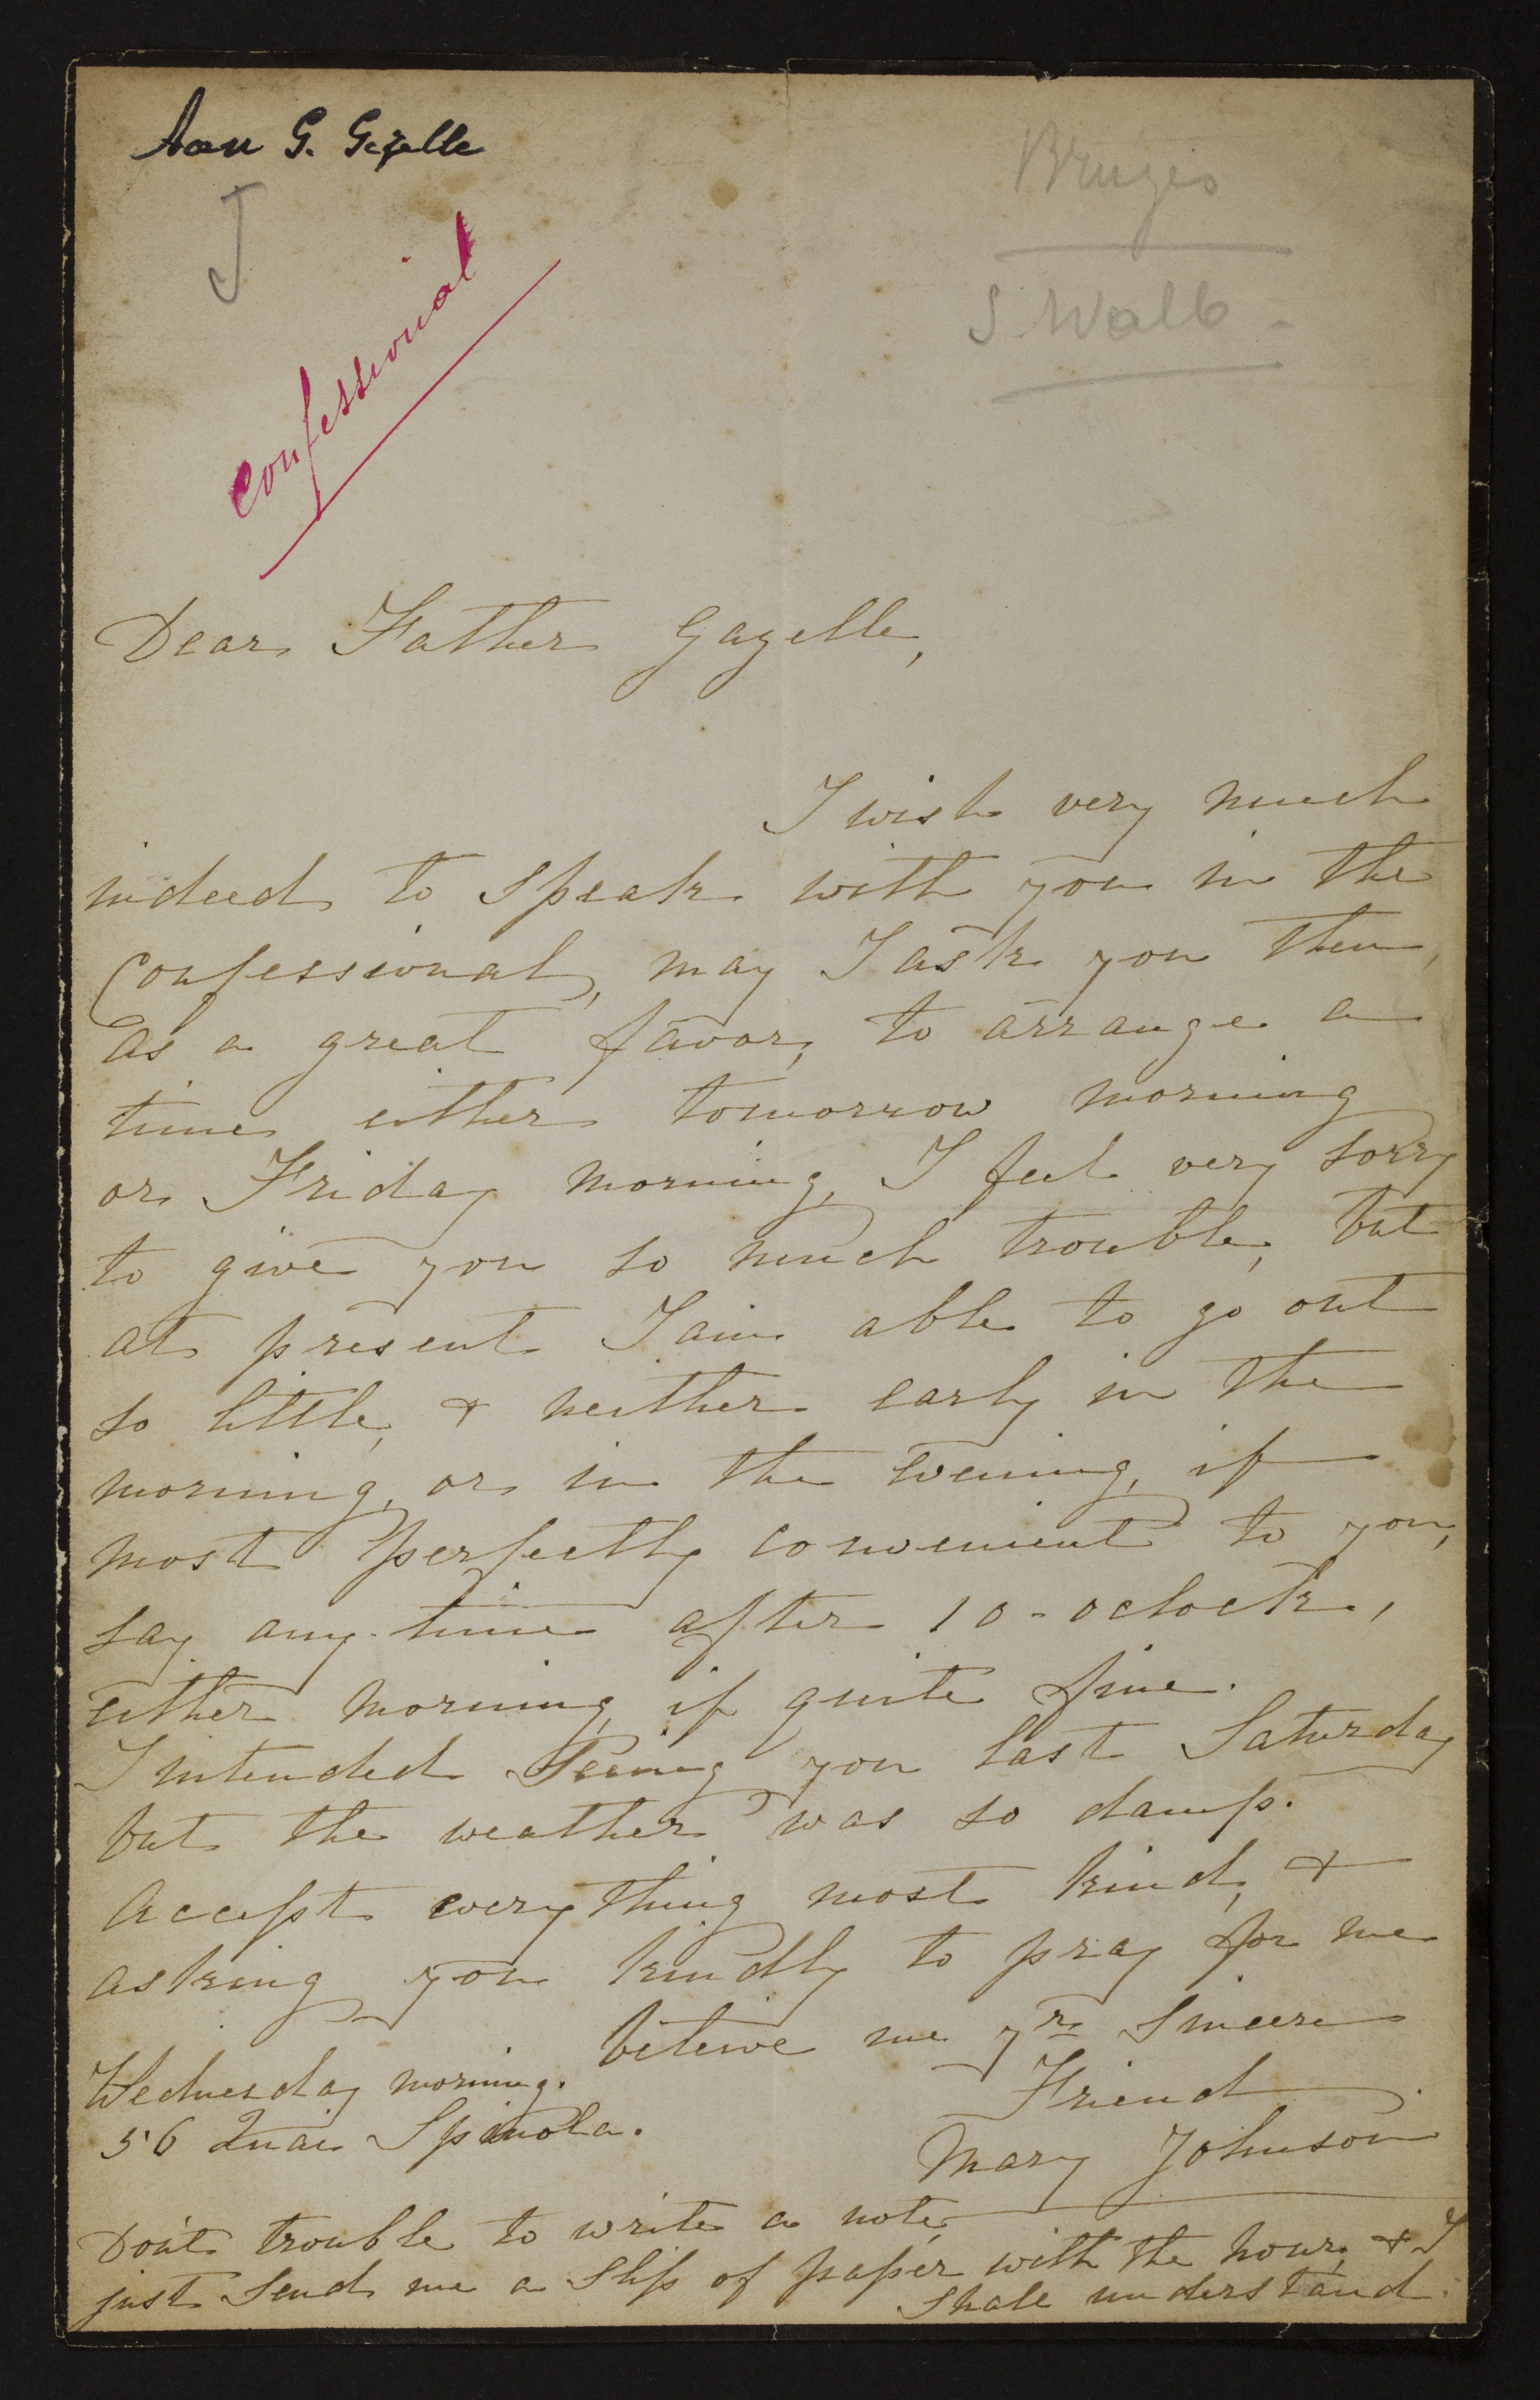 Aan G. Gezelle
J
Bruges
S. Walb
Confessional
Dear Father Gazelle,
I wish very much
indeed to speak with you in the
Confessional, may I ask you then,
as a great favor, to arrange a
time either tomorrow morning
or Friday morning, I feel very sorry
to give you so much trouble, but
at present I am able to go out
so little, & neither early in the
morning, or in the evening, if
most perfectly convenient to you,
say any-time after 10-oclock,
either morning, if quite fine.
I intended seeing you last Saturday
but the weather was so damp.
Accept everything most kind, &
asking you kindly to pray for me
believe me yr sincere
Friend
Mary Johnson
Wednesday morning.
56 Quai Spinola.
Don't trouble to write a note,
just send me a slip of paper with the hour, & I
shall understand.